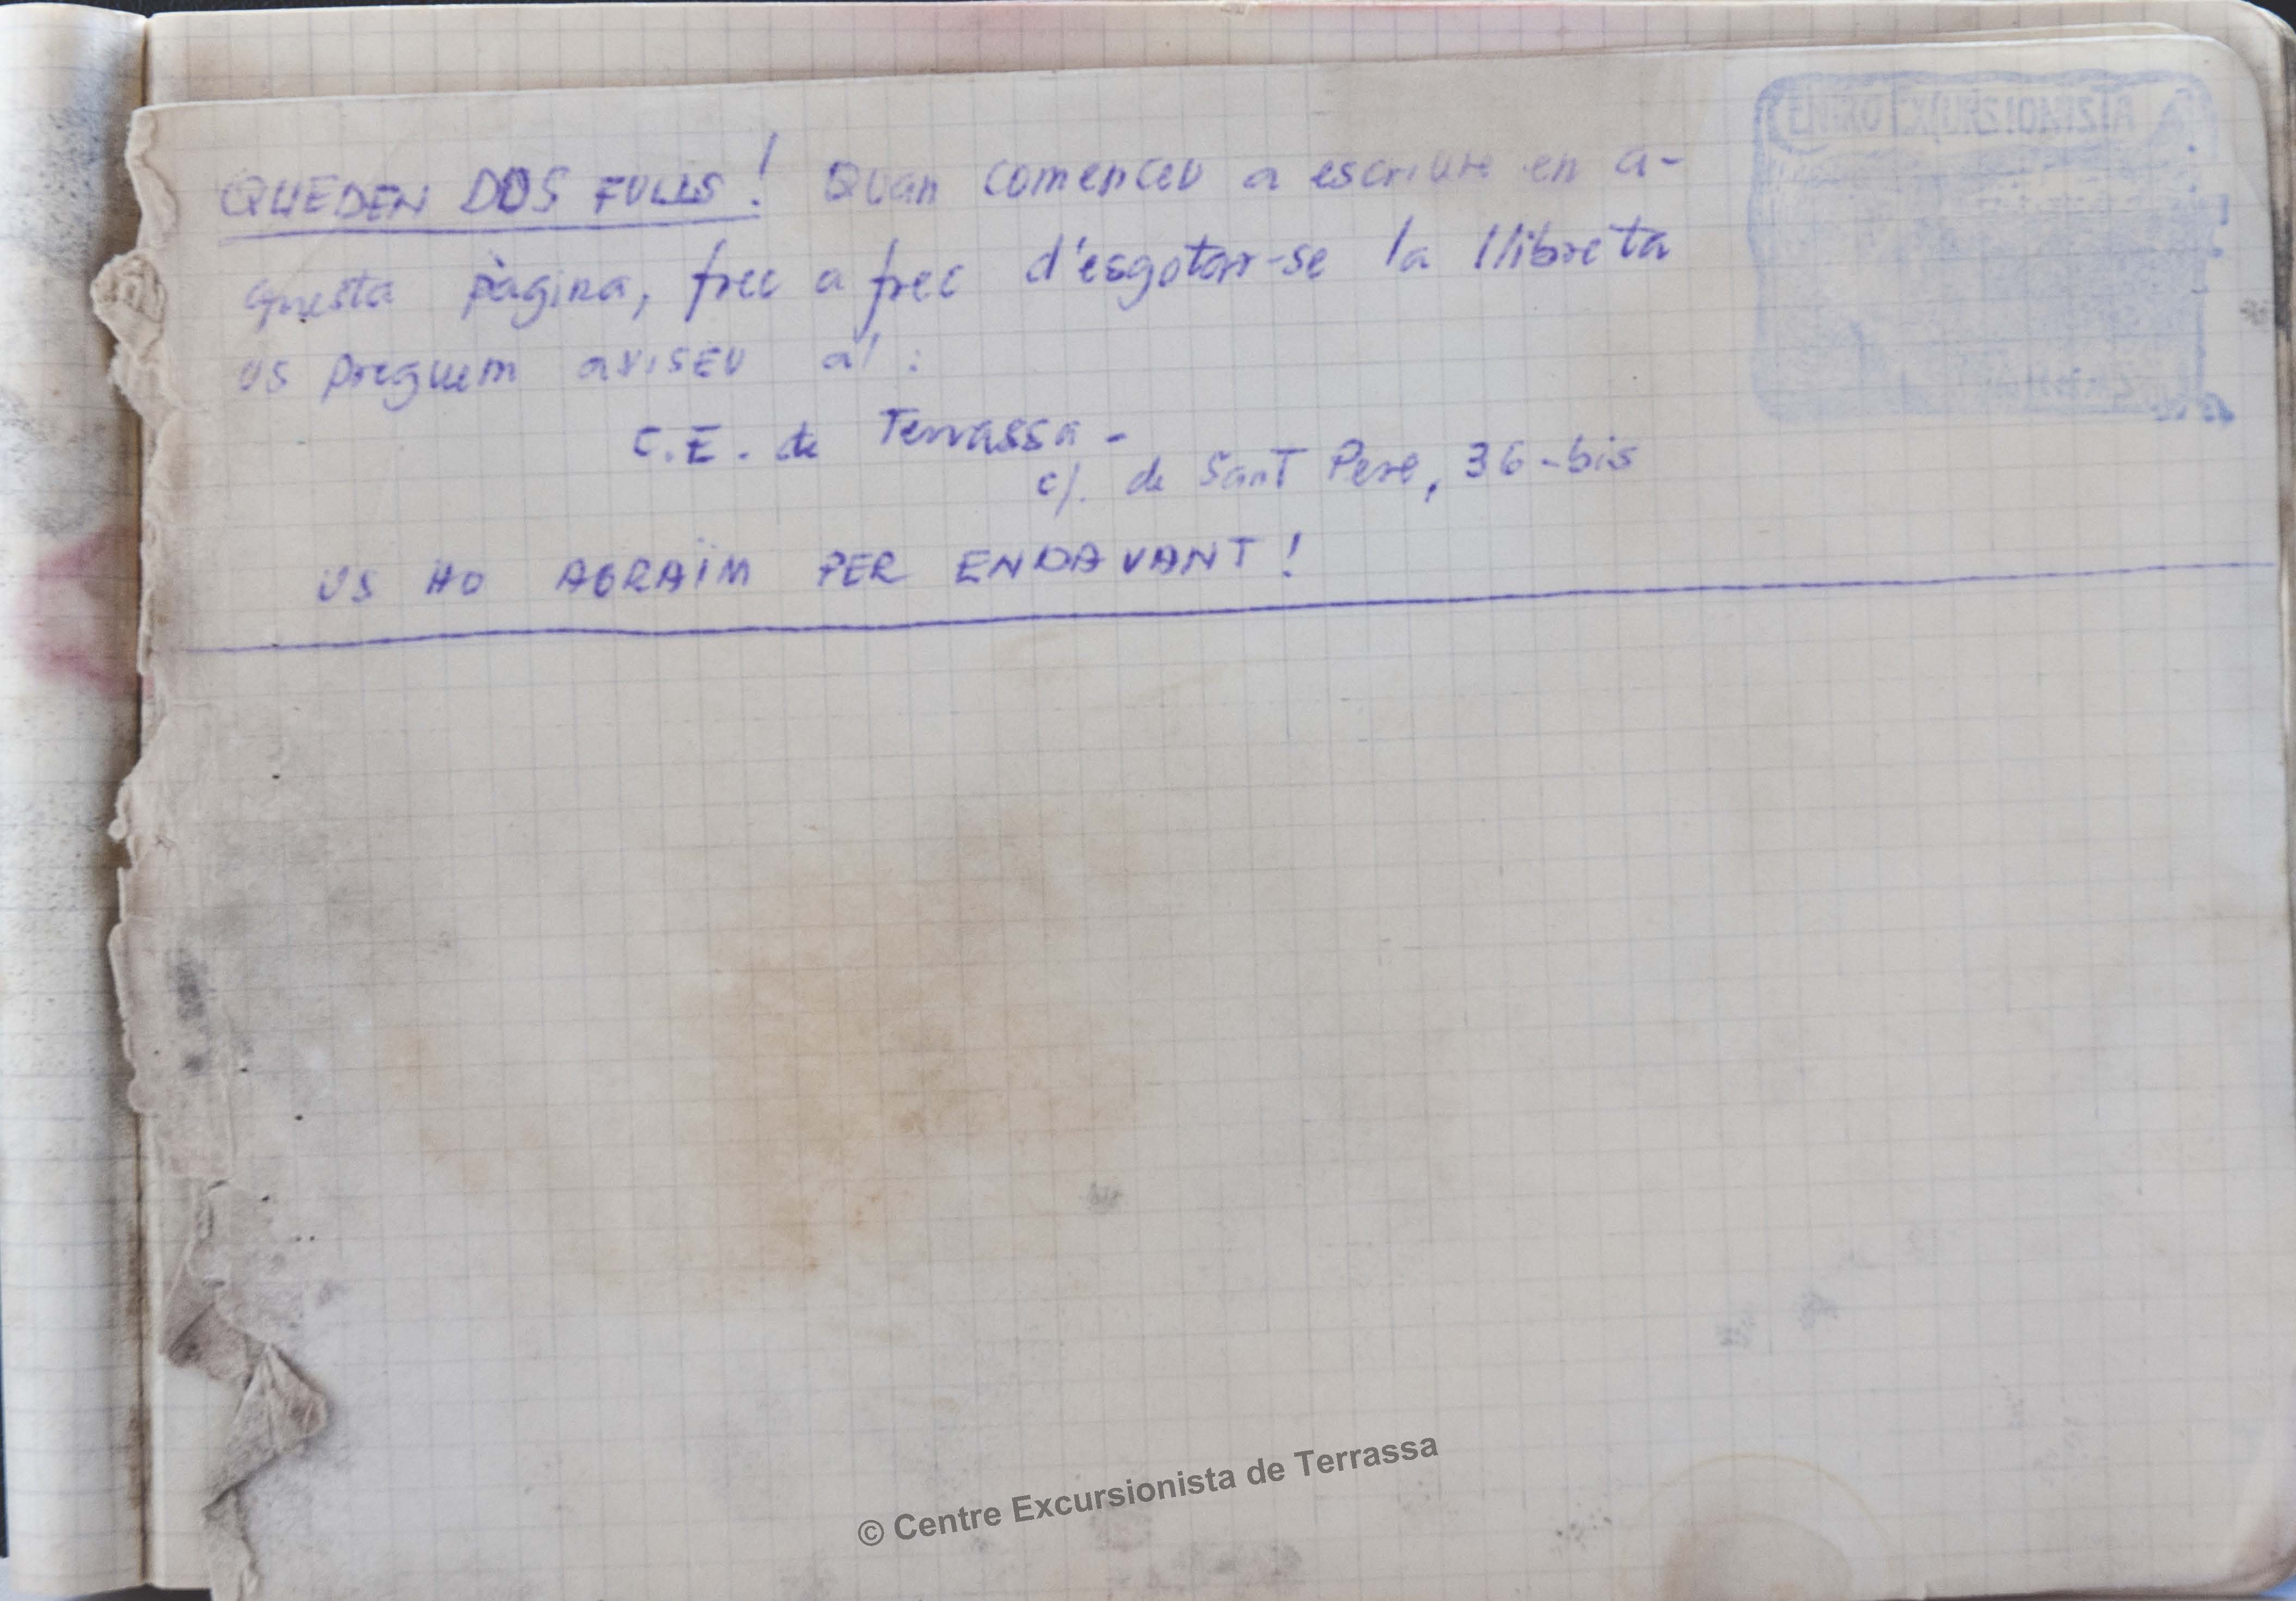 QUEDEN DOS FULLS! Quan comenceu a escriure en a-
questa pàgina, frec a frec d'esgotar-se la llibreta
us preguem aviseu al:
C.E. de Terrassa -
c/. de Sant Pere, 36-bis
US HO AGRAÏM PER ENDAVANT!
CENTRO EXCURSIONISTA
© Centre Excursionista de Terrassa